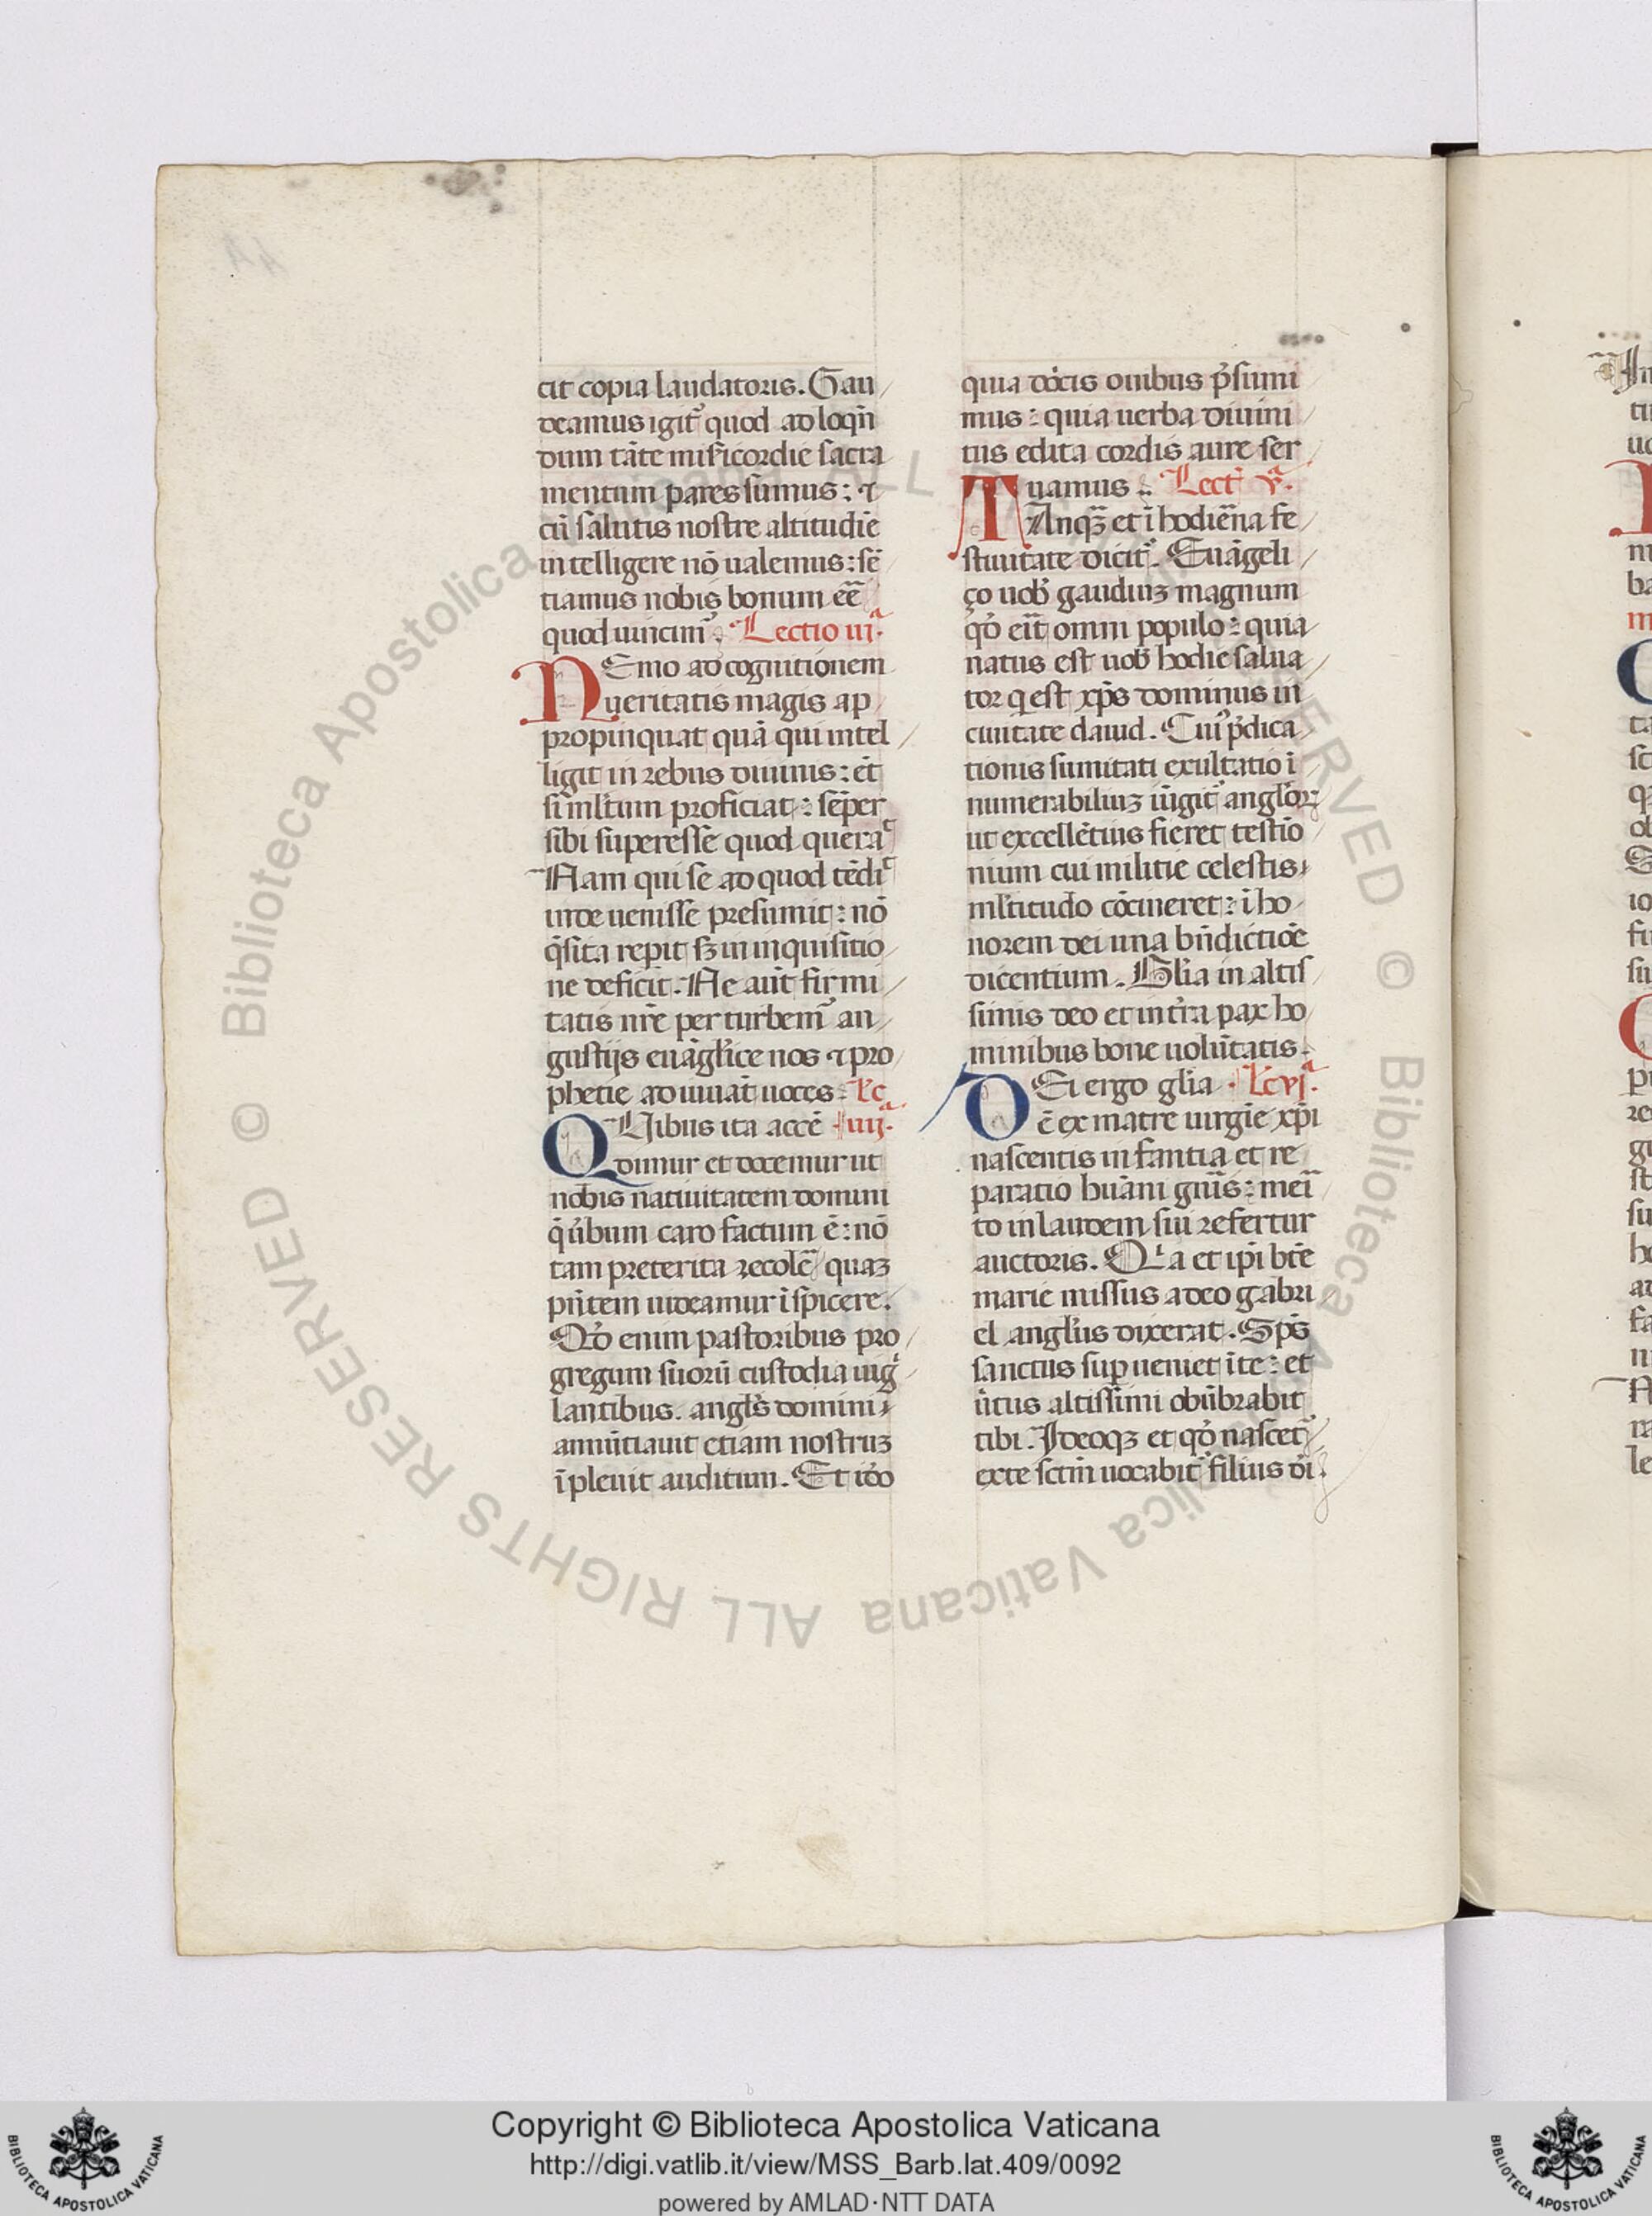 cit copia laudatoris. Gau
deamus igit᷑ quod ad loqn̄
dum tāte mis̄icordie sacra
mentum pares sumus: ⁊
cū salutis nostre altitudīe
intelligere nō ualemus: sē
tiamus nobis bonum eē
quod uincim᷑. Lectio iijᵃ.
NEmo ad cognitionem
ueritatis magis ap
propinquat quā qui intel
ligit in rebus diuinis: et
si ml̄tum proficiat: sēper
sibi superesse quod queraᵗ
Nam qui se ad quod tēdiᵗ
inde uenisse presumit: nō
q̄sita rep̄it sꝫ in inquisitio
ne deficit. Ne aūt firmi
tatis nr̄e perturbem᷑ an
gustijs euāgl̄ice nos ⁊ pro
phetie adiuuāt uoces: Lc̄
QUibus ita accē iiijᵃ.
dimur et docemur ut
nobis natiuitatem domini
q̄ ūbum caro factum ē: nō
tam preterita recolē quaꝫ
pn̄tem uideamur īspicere.
Qd̄ enim pastoribus pro
gregum suorū custodia uigⁱ
lantibus. angl̄s domini
annūtiauit etiam nostruꝫ
īpleuit auditum. Et id̄o
quia dōcis ouibus p̄sumi
mus: quia uerba diuini
tus edita cordis aure ser
uamus. Lect̄ vᵃ.
TAnqꝫ et ī hodiēna fe
stiuitate dicit᷑. Euāgeli
ço uob̄ gaudiuꝫ magnum
qd̄ erit omni populo: quia
natus est uob̄ hodie salua
tor q̄ est xp̄s dominus in
ciuitate dauid. Cui᷑ p̄dica
tionis sūmitati exultatio ī
numerabiliuꝫ iūgit᷑ angl̄oꝝ
ut excellētius fieret testīo
nium cui militie celestis
ml̄titudo cōcineret: ī ho
norem dei una bn̄dictiōe
dicentium. Gl̄ia in altis
simis deo et in tr̄a pax ho
minibus bone uolūtatis.
DEi ergo glīa Lc̄ vjᵃ.
ē ex matre uirgīe xp̄i
nascentis infantia et re
paratio huāni gn̄is: meī
to in laudem sui refertur
auctoris. Qⁱa et ip̄i bt̄e
marie missus a deo gabri
el angl̄us dixerat. Sp̄s
sanctus sup̄ueniet ī te: et
ūtus altissimi obūbrabit
tibi. Ideoqꝫ et qd̄ nascet᷑
ex te sct̄m uocabit᷑ filius dī.
© Biblioteca Apostolica Vaticana ALL RIGHTS RESERVED © Biblioteca Apostolica Vaticana ALL RIGHTS RESERVED
Copyright © Biblioteca Apostolica Vaticana
http://digi.vatlib.it/view/MSS_Barb.lat.409/0092
powered by AMLAD·NTT DATA
BIBLIOTECA APOSTOLICA VATICANA
BIBLIOTECA APOSTOLICA VATICANA